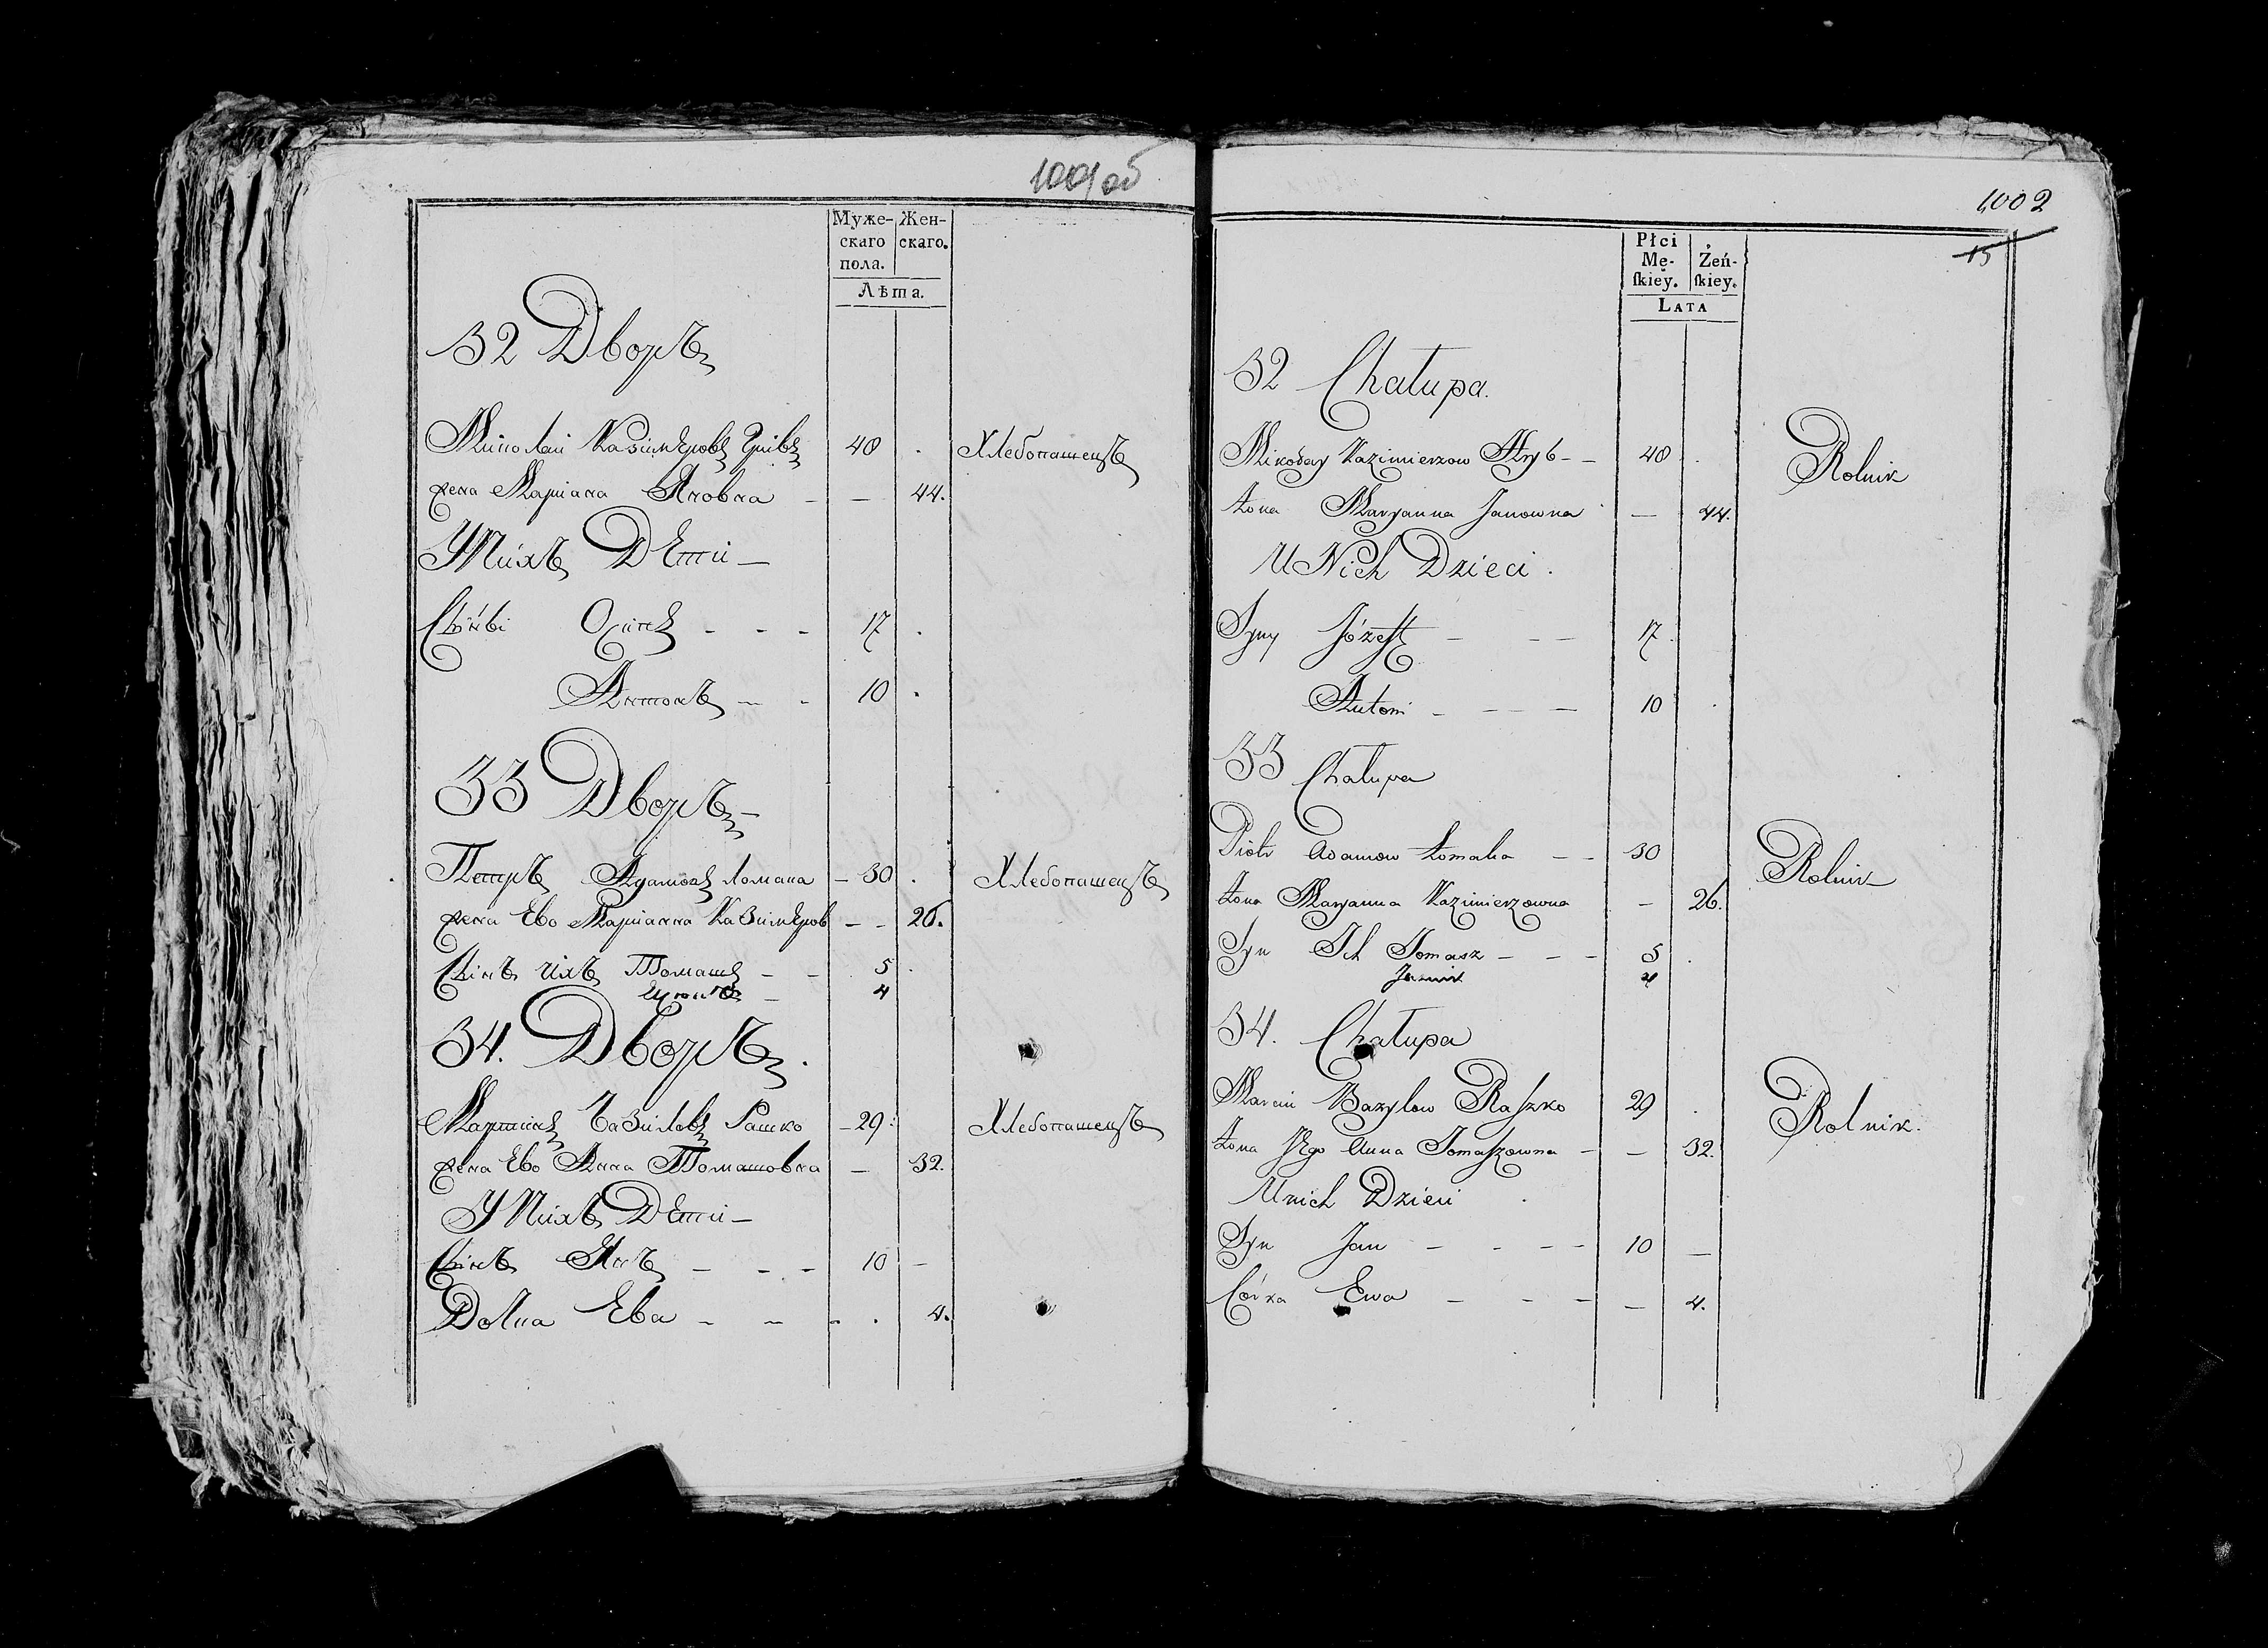 1001 об
Муже-
скаго
пола.
Жен-
скаго.
Лѣта.
32 Дворъ
Миколай Казимѣровъ Грибъ 40 Хлебопашецъ
жена Мариана Яновна 44.
У Нихъ Дѣти
Сыны Осипъ 17
Антонъ 10
33 Дворъ
Петръ Адамовъ Ломака 30 Хлебопашецъ
жена Ево Марианна Казимѣров 26.
Сынъ ихъ Томашъ 5
4
34. Дворъ.
Мартинъ Базиловъ Рашко 29 Хлебопашецъ
жена Ево Анна Томашовна 32.
У Нихъ Дѣти
Сынъ Янъ 10
Дочка Ева 4.
1002
15
Płci
Mę-
skiey.
Żeń-
skiey.
LATA
32 Chałupa.
Mikołay Kazimierzow Hryb 40 Rolnik
żona Maryanna Janowna 44.
U Nich Dzieci.
Syny Józeff 17
Antoni 10
33 Chałupa
Piotr Adamow Łomaka 30 Rolnik
żona Maryanna Kazimierzowna 26.
Syn Ich Tomasz 5
4
34. Chałupa
Marcin Bazylow Raszko 29 Rolnik.
żona Jego Anna Tomaszowna 32.
U nich Dzieci
Syn Jan 10
Córka Ewa 4.